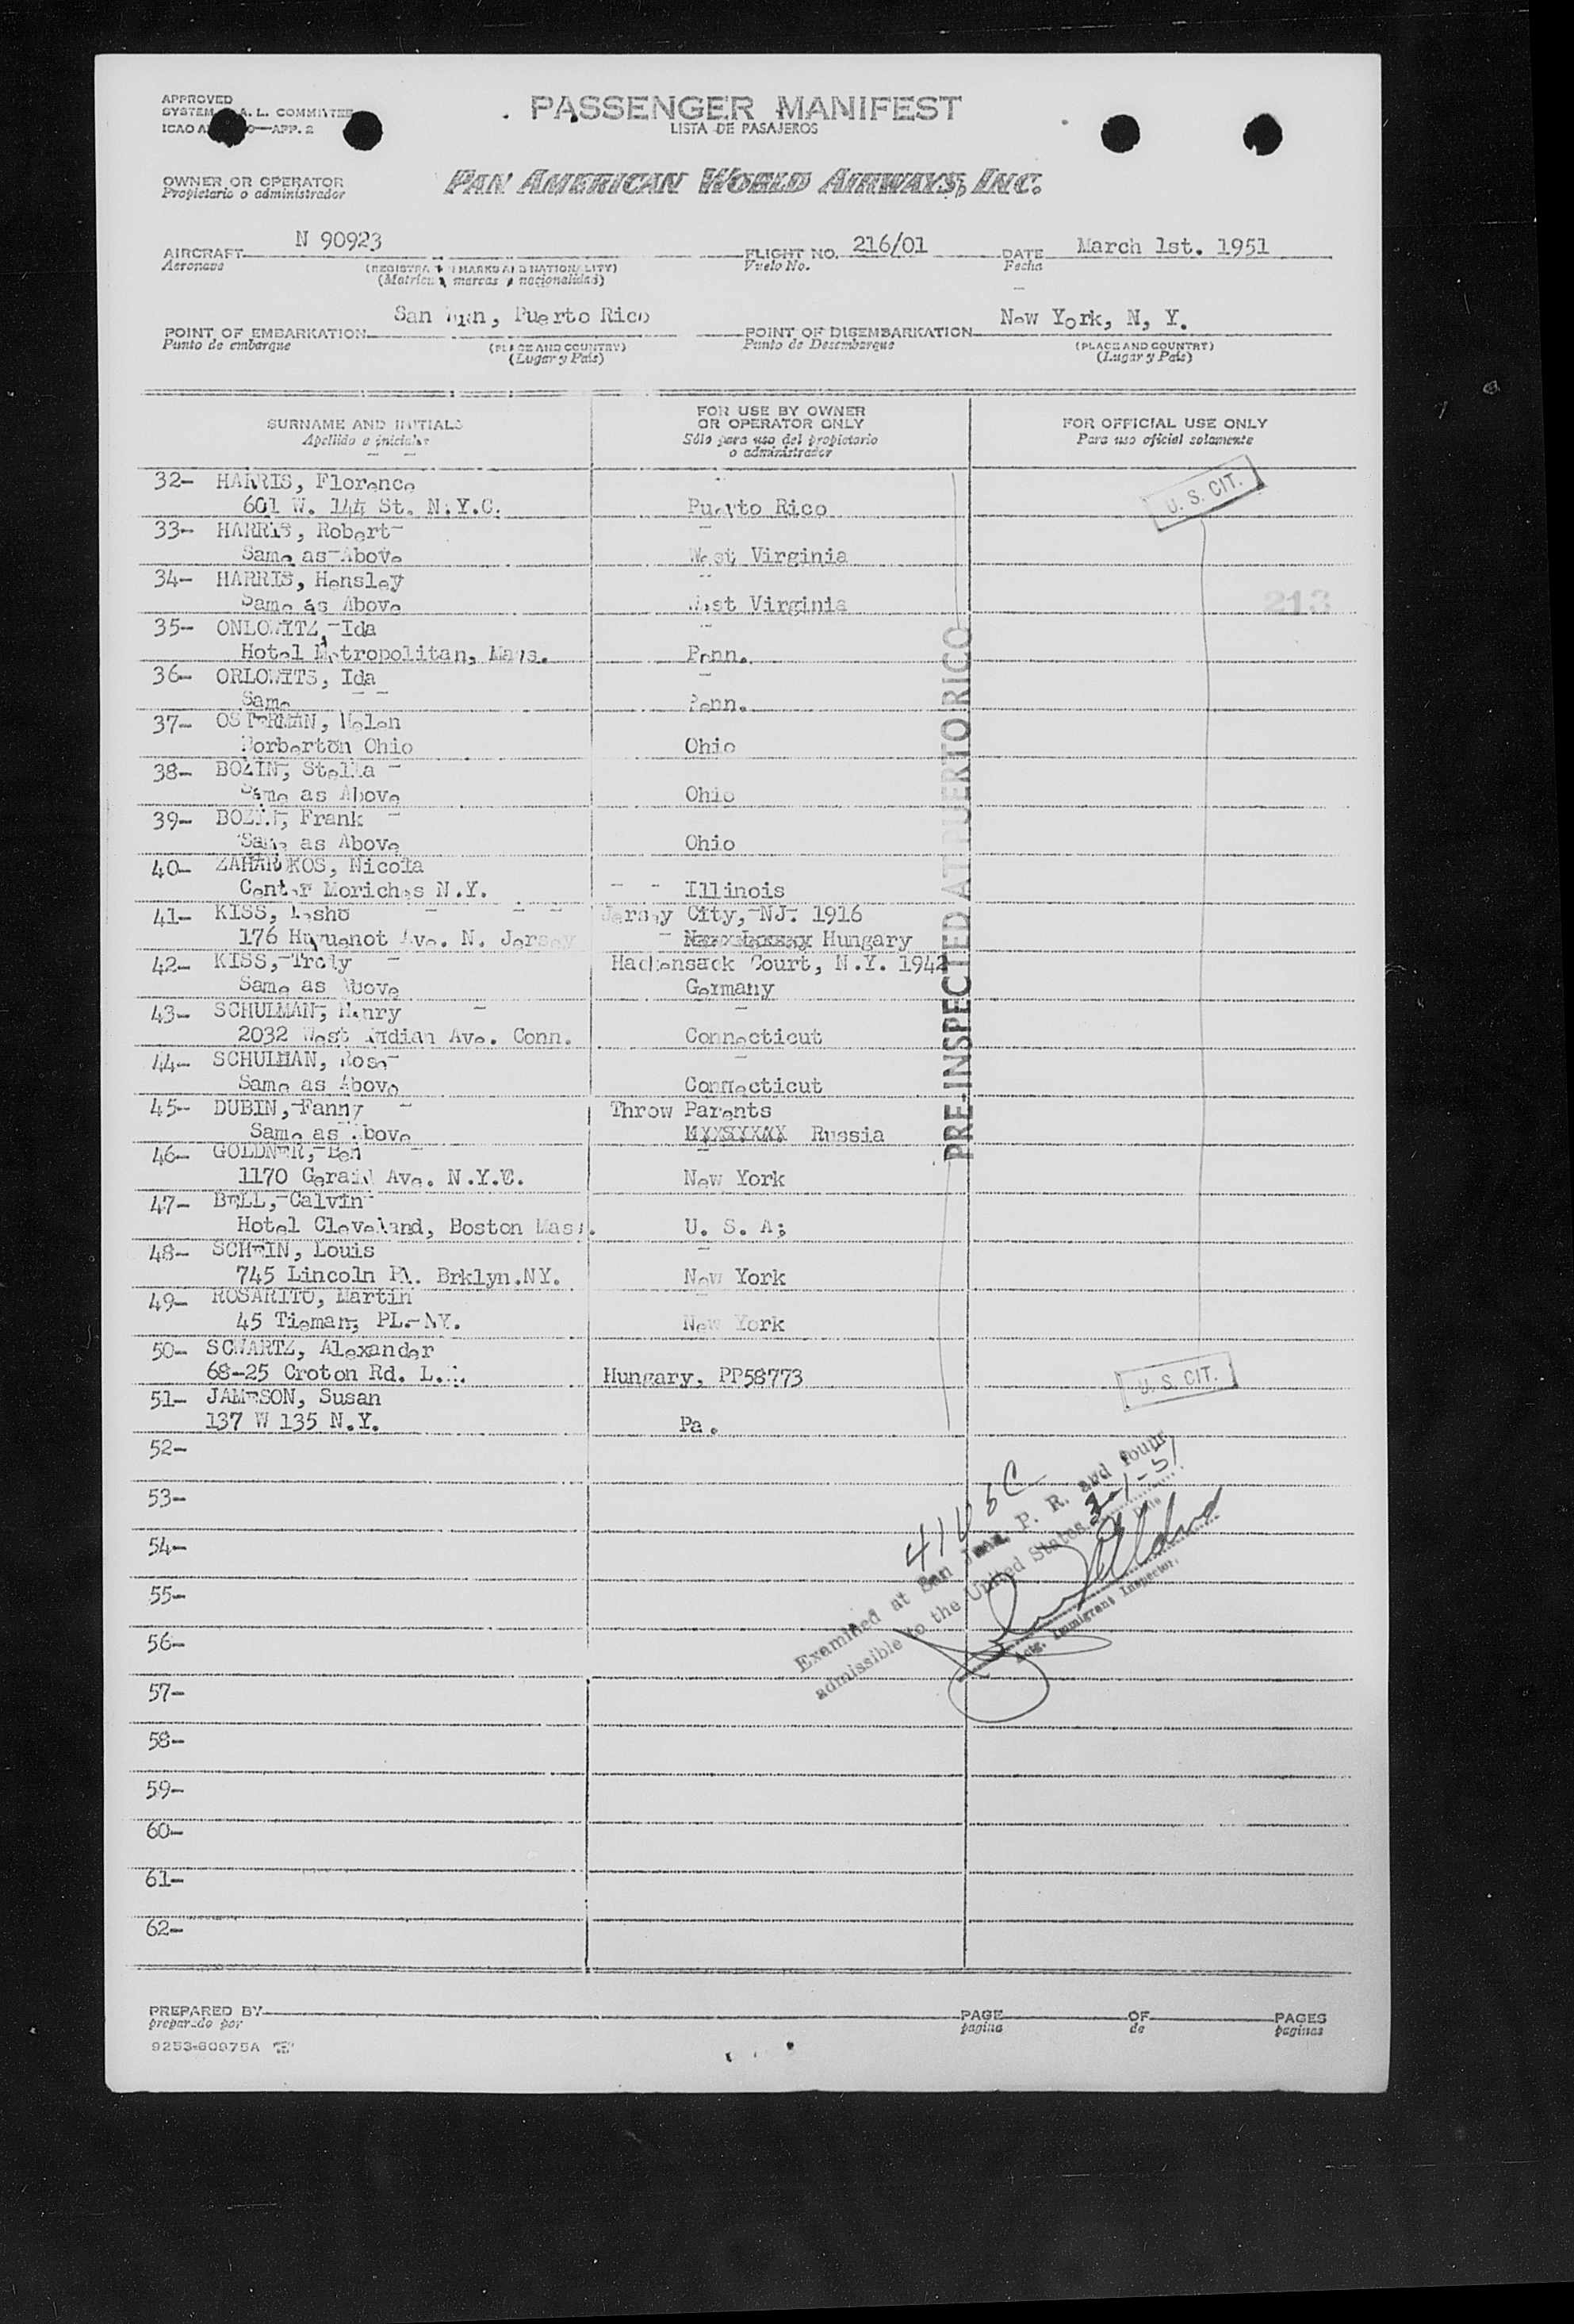 APPROVED
SYSTEM A. L. COMMITTEE
ICAO —APP. 2
PASSENGER MANIFEST
LISTA DE PASAJEROS
OWNER OR OPERATOR
Propietario o administrador
PAN AMERICAN WORLD AIRWAYS, INC.
AIRCRAFT N 90923
Aeronave
(REGISTRATION MARKS AND NATIONALITY)
(Matricula, marcas y nacionalidad)
FLIGHT NO. 216/01
Vuelo No.
DATE March 1st. 1951
Fecha
POINT OF EMBARKATION San Juan, Puerto Rico
Punto de embarque
(PLACE AND COUNTRY)
(Lugar y País)
POINT OF DISEMBARKATION New York, N, Y.
Punto de Desembarque
(PLACE AND COUNTRY)
(Lugar y País)
SURNAME AND INITIALS
Apellido e iniciales
FOR USE BY OWNER
OR OPERATOR ONLY
Sólo para uso del propietario
o administrador
FOR OFFICIAL USE ONLY
Para uso oficial solamente
32- HARRIS, Florence
601 W. 144 St. N.Y.C. Puerto Rico
U. S. CIT.
33- HARRIS, Robert
Same as Above West Virginia
34- HARRIS, Hensley
Same as Above West Virginia
213
35- ONLOWITZ, Ida
Hotel Metropolitan, Mass. Penn.
36- ORLOWITS, Ida
Same Penn.
37- OSTERMAN, Helen
Norberton Ohio Ohio
38- BOZIN, Stella
Same as Above Ohio
39- BOZIN, Frank
Same as Above Ohio
40- ZAHARKOS, Nicola
Center Moriches N.Y. Illinois
41- KISS, Jersey City, NJ. 1916
176 Huguenot Ave. N. Jersey Hungary
42- KISS, Hackensack Court, N.Y. 1942
Same as Above Germany
43- SCHULMAN, Henry
2032 West Indian Ave. Conn. Connecticut
44- SCHULMAN, Rose
Same as Above Connecticut
45- DUBIN, Fanny Throw Parents
Same as Above Russia
46- GOLDNER, Ben
1170 Gerald Ave. N.Y.C. New York
47- BELL, Calvin
Hotel Cleveland, Boston Mass. U. S. A;
48- SCHEIN, Louis
745 Lincoln Pl. Brklyn.NY. New York
49- ROSARITO, Martin
45 Tieman, PL.-NY. New York
50- SCWARTZ, Alexander
68-25 Croton Rd. L.I. Hungary, PP58773
U. S. CIT.
51- JAMESON, Susan
137 W 135 N.Y. Pa.
PRE-INSPECTED AT PUERTO RICO
52-
53-
54-
55-
56-
57-
58-
59-
60-
61-
62-
Examined at San Juan, P. R. and found
admissible to the United States. 3-1-51
Date
Actg. Immigrant Inspector.
PREPARED BY
preparado por
PAGE
pagina
OF
de
PAGES
paginas
9253-60975A